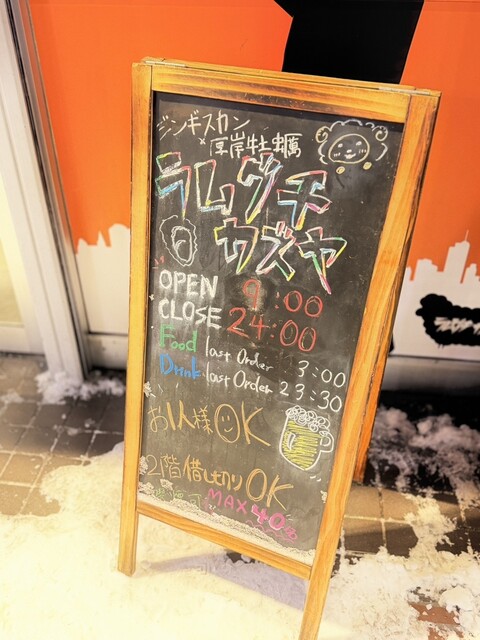 ジンギスカン
×厚岸牡蠣
ラムグチ
カズヤ
OPEN 9:00
CLOSE 24:00
Food last Order 3:00
Drink last Order 23:30
お1人様OK
2階借し切りOK
MAX40名